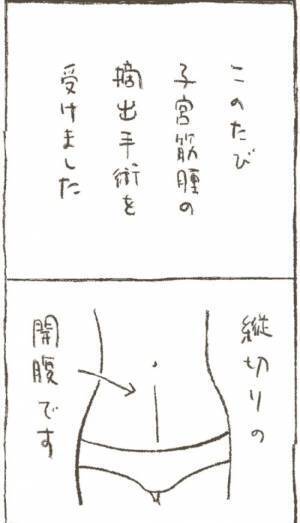 このたび
子宮筋腫の
摘出手術を
受けました
縦切りの
開腹です